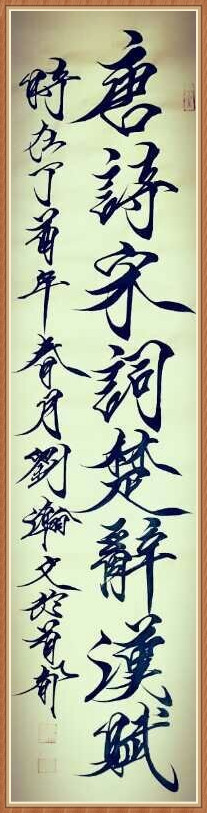 唐詩宋詞楚辭漢賦
時在丁酉年春月劉瀚文於首都